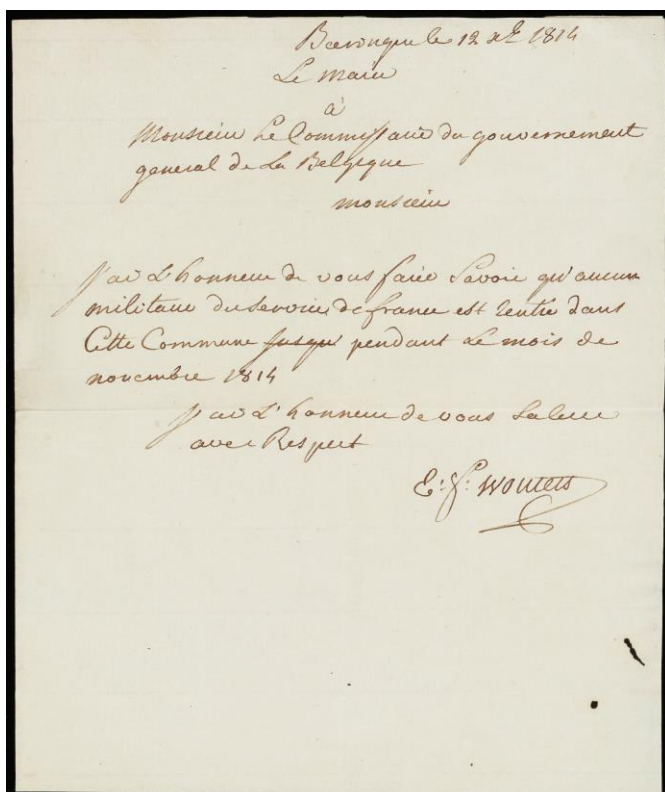 le 12 xbre 1814
Le maire
à
Monsieur Le Commissaire du gouvernement
general de La Belgique
monsieur
J'ai L'honneur de vous faire Savoir qu'aucun
militaire du Service de france est rentré dans
Cette Commune jusqu' pendant Le mois de
novembre 1814
J'ai L'honneur de vous Saluer
avec Respect
Wouters